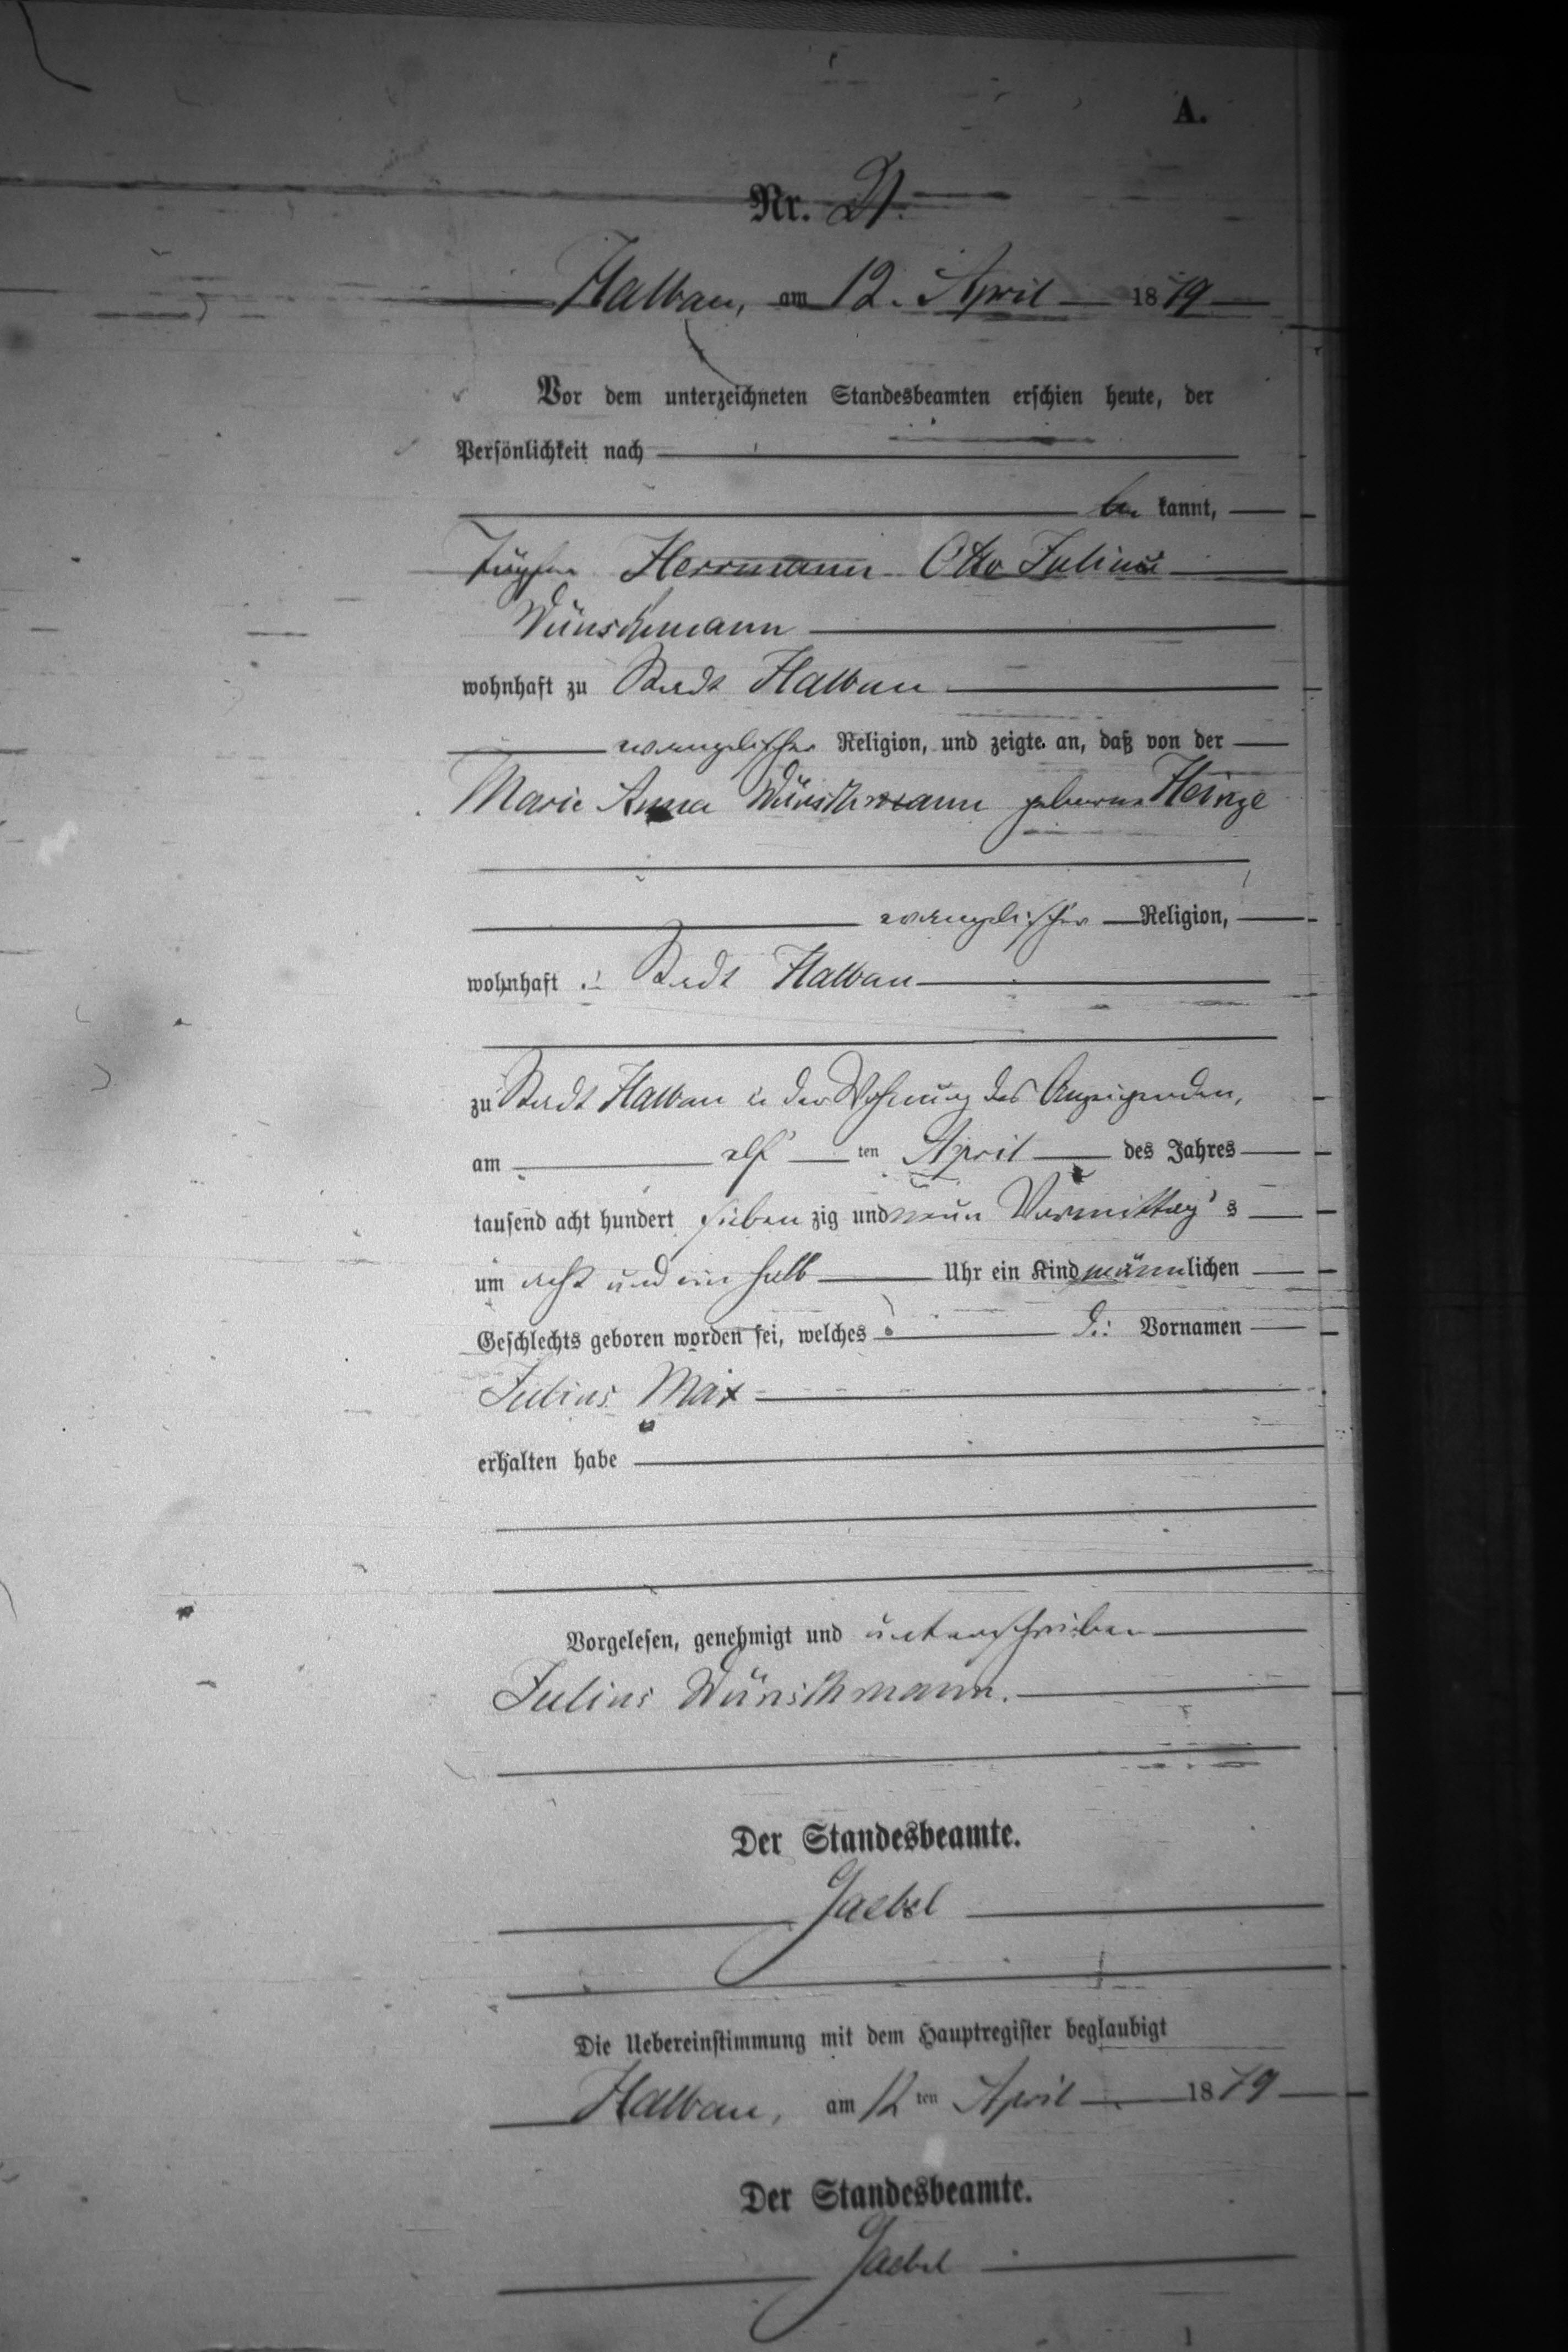 A.
Nr. 21.
Halbau, am 12. April 1879
Vor dem unterzeichneten Standesbeamten erschien heute, der
Persönlichkeit nach
be kannt,
Herrmann Otto Julius
Wünschmann
wohnhaft zu Stadt Halbau
evangelischer Religion, und zeigte an, daß von der
Marie Anna Wünschmann geborne Heinze
evangelischer Religion,
wohnhaft Stadt Halbau
zu Stadt Halbau in der Wohnung des Anzeigenden,
am elf ten April des Jahres
tausend acht hundert sieben zig und neun Vormittag s
um acht und ein halb Uhr ein Kind männlichen
Geschlechts geboren worden sei, welches die Vornamen
Julius Max
erhalten habe
Vorgelesen, genehmigt und unterschrieben
Julius Wünschmann.
Der Standesbeamte.
Jaebel
Die Uebereinstimmung mit dem Hauptregister beglaubigt
Halbau, am 12 ten April 1879
Der Standesbeamte.
Jaebel